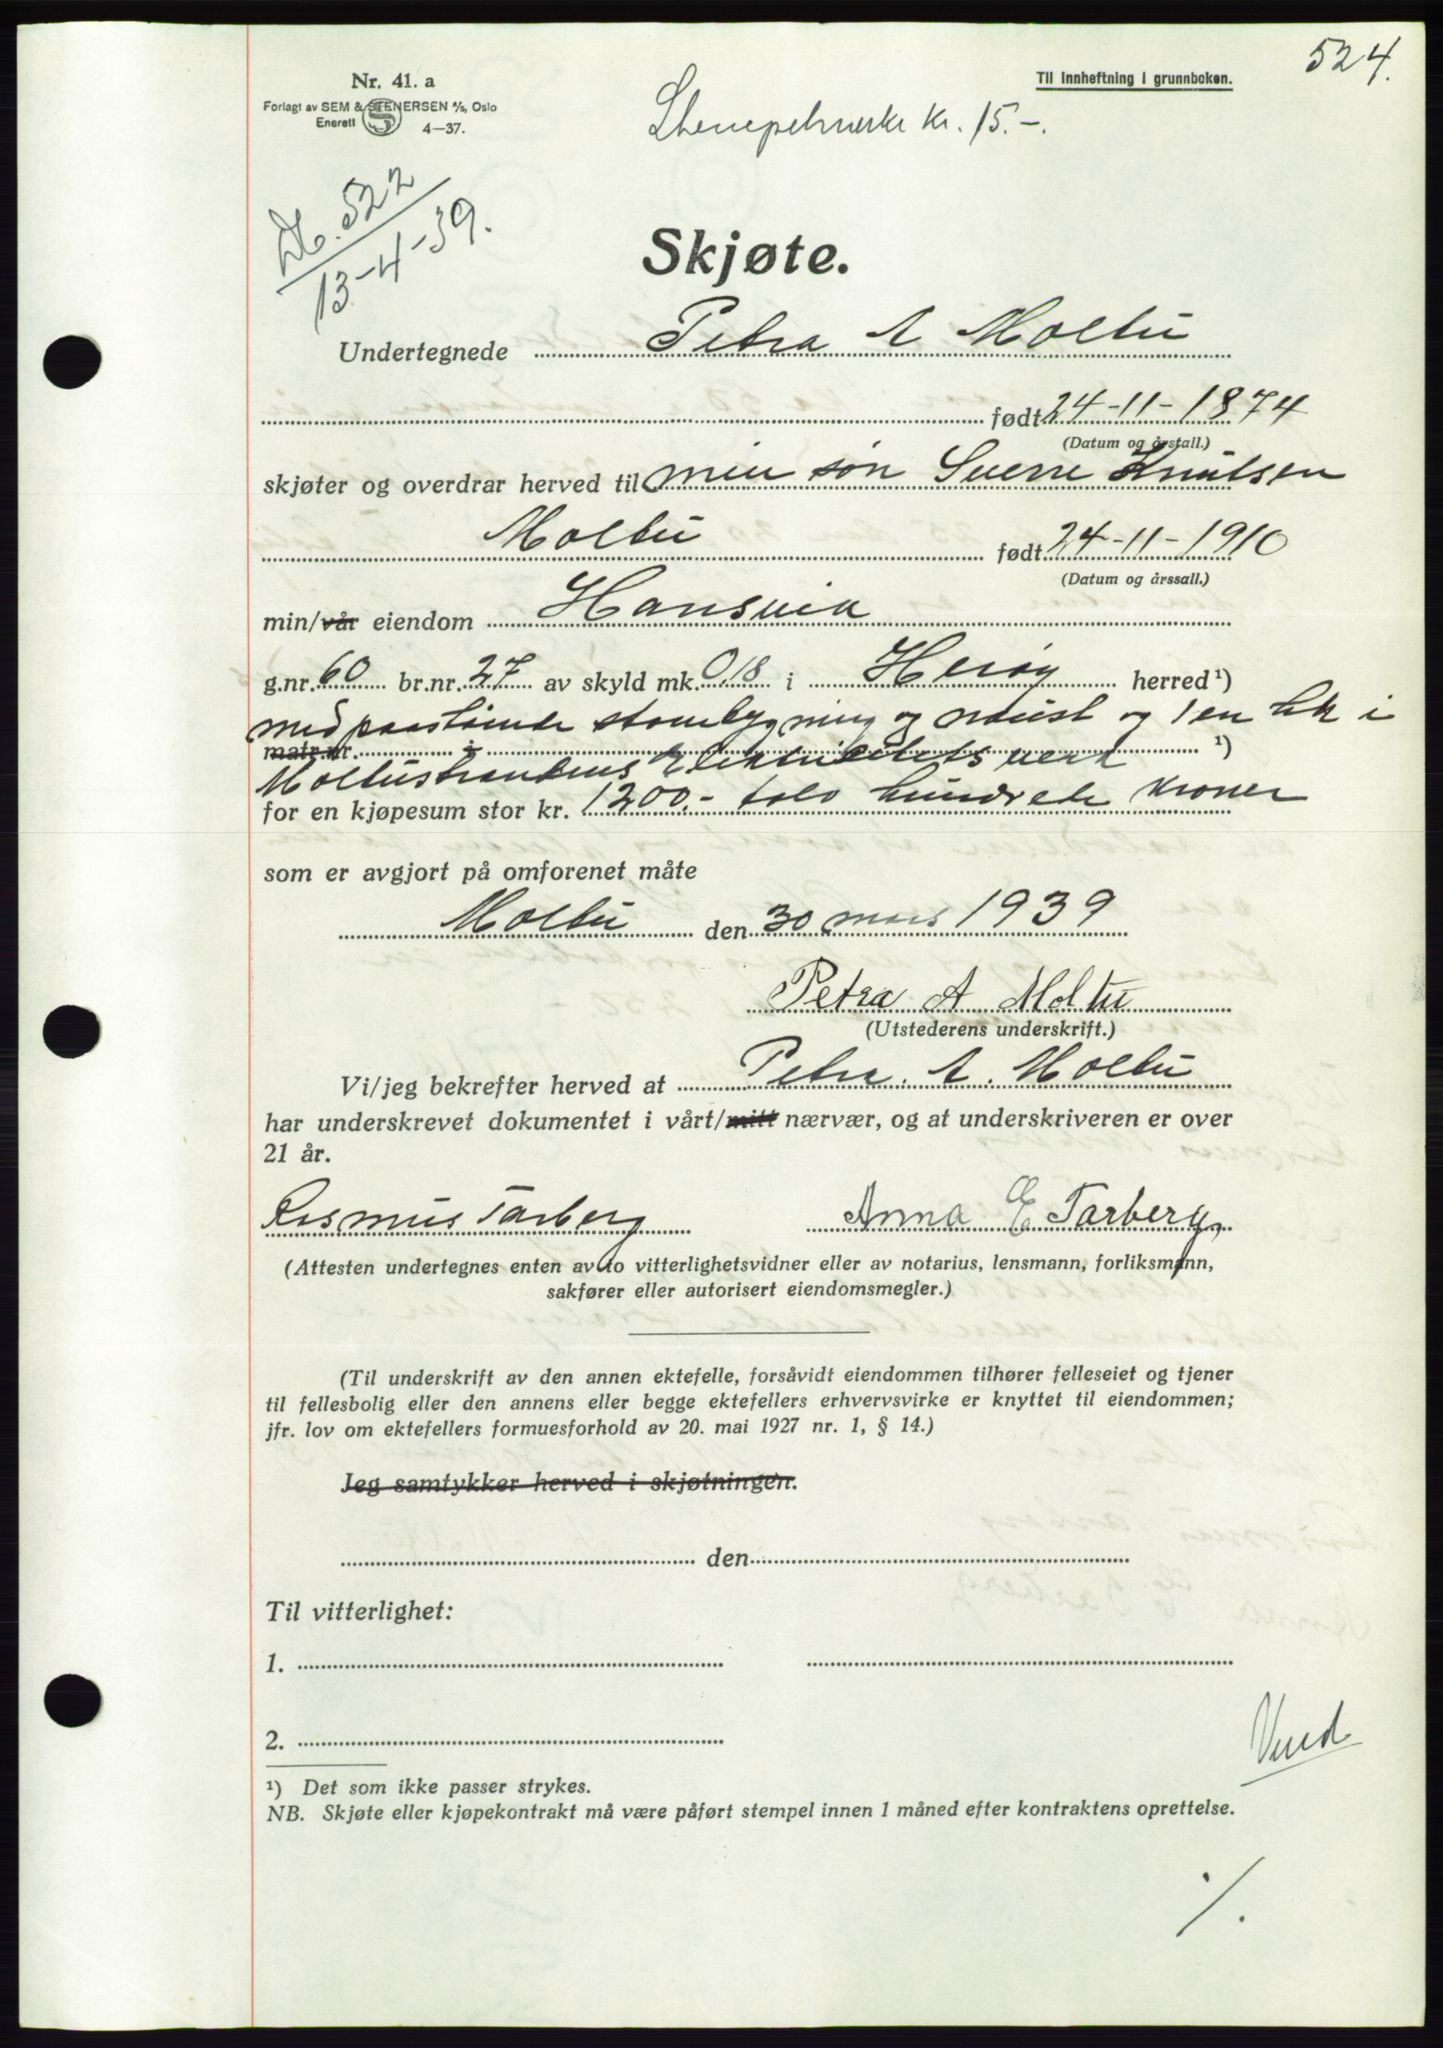 524.
Nr. 41. a
Til innheftning i grunnboken.
Forlagt av SEM & STENERSEN A/S, Oslo
Enerett
4—37.
Stempelmerke kr. 15.-.
Db. 522
13-4-39.
Skjøte.
Undertegnede Petra A Moltu
født 24-11-1874
(Datum og årstall.)
skjøter og overdrar herved til min søn Sverre Knutsen
Moltu født 24-11-1910
(Datum og årssall.)
min/vår eiendom Hansvik
g.nr. 60 br.nr. 27 av skyld mk. 0,18 i Herøy herred¹)
med paastående stovebygning og nøust og 1 en hk i
matr.nr. i ¹)
Moltustrandens Elektricitetsverk
for en kjøpesum stor kr. 1200.- tolv hundrede kroner
som er avgjort på omforenet måte
Moltu den 30 mars 1939
Petra A Moltu
(Utstederens underskrift.)
Vi/jeg bekrefter herved at Petra. A. Moltu
har underskrevet dokumentet i vårt/mitt nærvær, og at underskriveren er over
21 år.
Rasmus Tarberg Anna E Tarberg,
(Attesten undertegnes enten av to vitterlighetsvidner eller av notarius, lensmann, forliksmann,
sakfører eller autorisert eiendomsmegler.)
(Til underskrift av den annen ektefelle, forsåvidt eiendommen tilhører felleseiet og tjener
til fellesbolig eller den annens eller begge ektefellers erhvervsvirke er knyttet til eiendommen;
jfr. lov om ektefellers formuesforhold av 20. mai 1927 nr. 1, § 14.)
Jeg samtykker herved i skjøtningen.
den
Til vitterlighet:
1.
2.
Vend
¹) Det som ikke passer strykes.
NB. Skjøte eller kjøpekontrakt må være påført stempel innen 1 måned efter kontraktens oprettelse.
./.